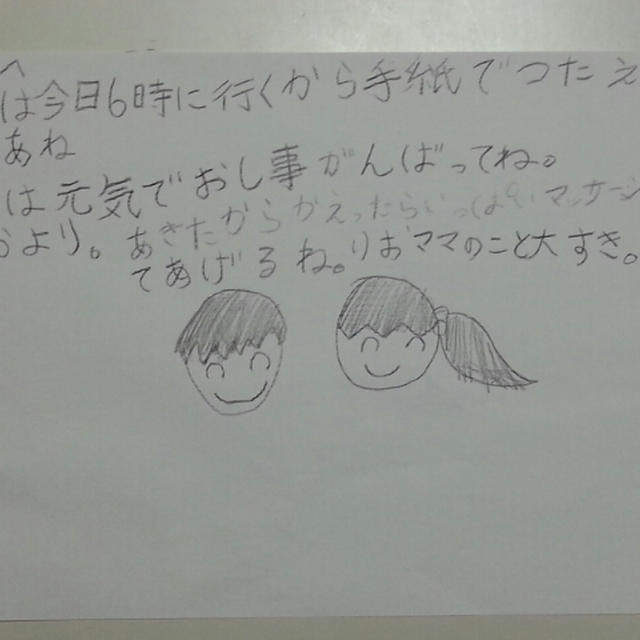 へ
は今日6時に行くから手紙でつたえ
あね
は元気でおし事がんばってね。
より。あきたからかえったらいっぱいマッサージ
てあげるね。りおママのこと大すき。